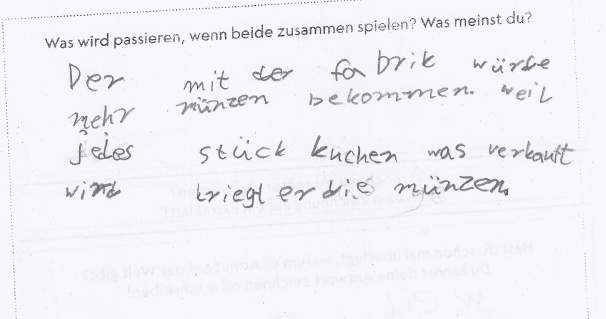 Was wird passieren, wenn beide zusammen spielen? Was meinst du?
Der mit der fabrik würde
mehr münzen bekommen. weil
jedes stück kuchen was verkauft
wird kriegt er die münzen.